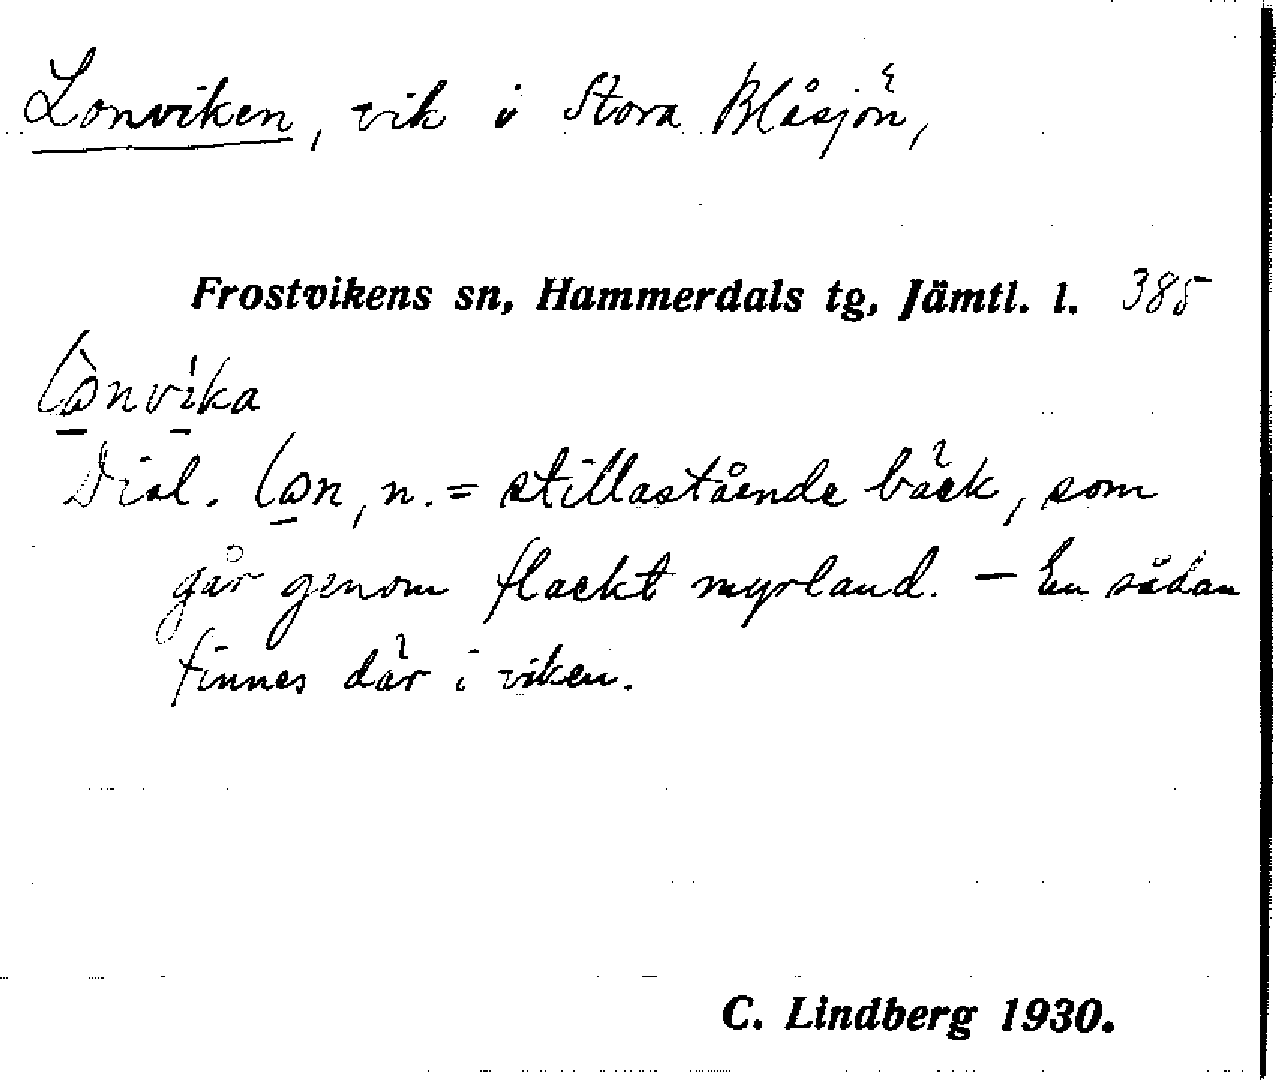 Lonviken, vik i Stora Blåsjön,
Frostvikens sn, Hammerdals tg, Jämtl. l. 385
lònvìka
Dial. lon, n. = stillastående bäck, som
går genom flackt myrland. – En sådan
finnes där i viken.
C. Lindberg 1930.